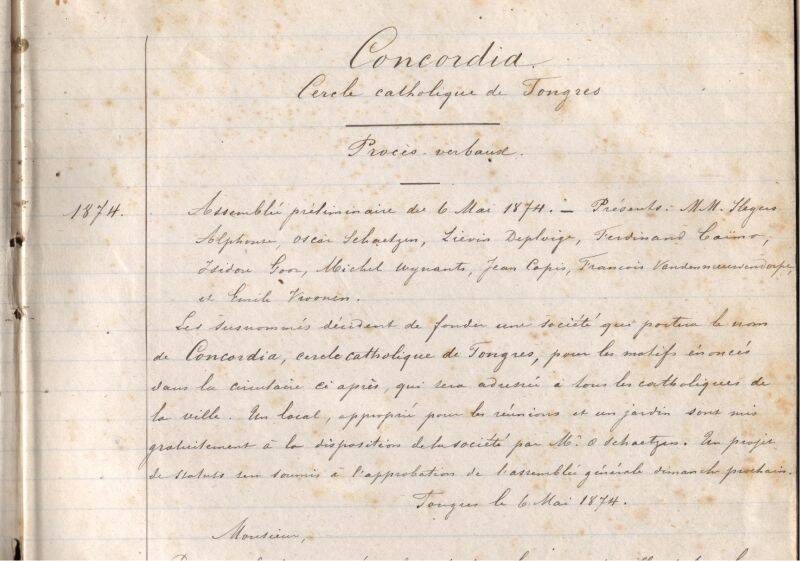 Concordia.
Cercle catholique de Tongres
Procès-verbaux.
1874.
Assemblée préliminaire du 6 Mai 1874. — Présents: MM. Slegers
Alphonse, Oscar Schaetzen, Liévin Deploige, Ferdinand Caïmo,
Isidore Goor, Michel Wynants, Jean Capis, François
et Emile Vroonen.
Les susnommés décident de fonder une société qui portera le nom
de Concordia, cercle catholique de Tongres, pour les motifs énoncés
dans la circulaire ci après, qui sera adressée à tous les catholiques de
la ville. Un local, approprié pour les réunions et un jardin sont mis
gratuitement à la disposition de la société par Mr. O Schaetzen. Un projet
de statuts sera soumis à l'approbation de l'assemblée générale dimanche prochain.
Tongres le 6 Mai 1874.
Monsieur,